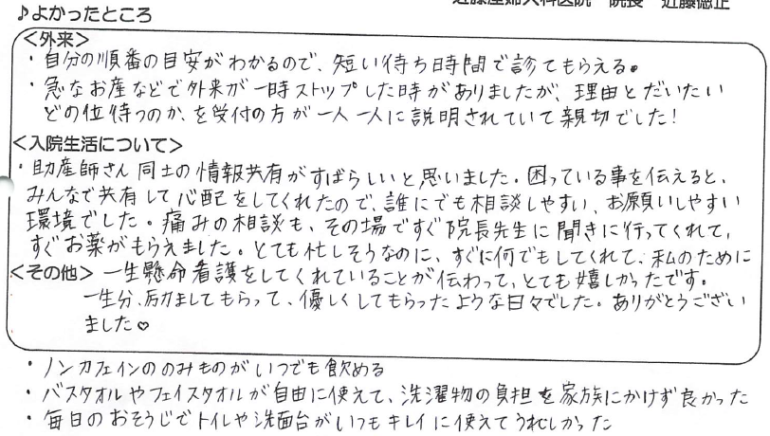 近藤産婦人科医院 院長 近藤徳正
♪よかったところ
＜外来＞
・自分の順番の目安がわかるので、短い待ち時間で診てもらえる。
・急なお産などで外来が一時ストップした時がありましたが、理由とだいたい
どの位待つのか、を受付の方が一人一人に説明されていて親切でした!
＜入院生活について＞
・助産師さん同士の情報共有がすばらしいと思いました。困っている事を伝えると、
みんなで共有して心配をしてくれたので、誰にでも相談しやすい、お願いしやすい
環境でした。痛みの相談も、その場ですぐ院長先生に聞きに行ってくれて、
すぐお薬がもらえました。とても忙しそうなのに、すぐに何でもしてくれて、私のために
＜その他＞一生懸命看護をしてくれていることが伝わって、とても嬉しかったです。
一生分、励ましてもらって、優しくしてもらったような日々でした。ありがとうござい
ました♡
・ノンカフェインののみものがいつでも飲める
・バスタオルやフェイスタオルが自由に使えて、洗濯物の負担を家族にかけず良かった
・毎日のおそうじでトイレや洗面台がいつもキレイに使えてうれしかった